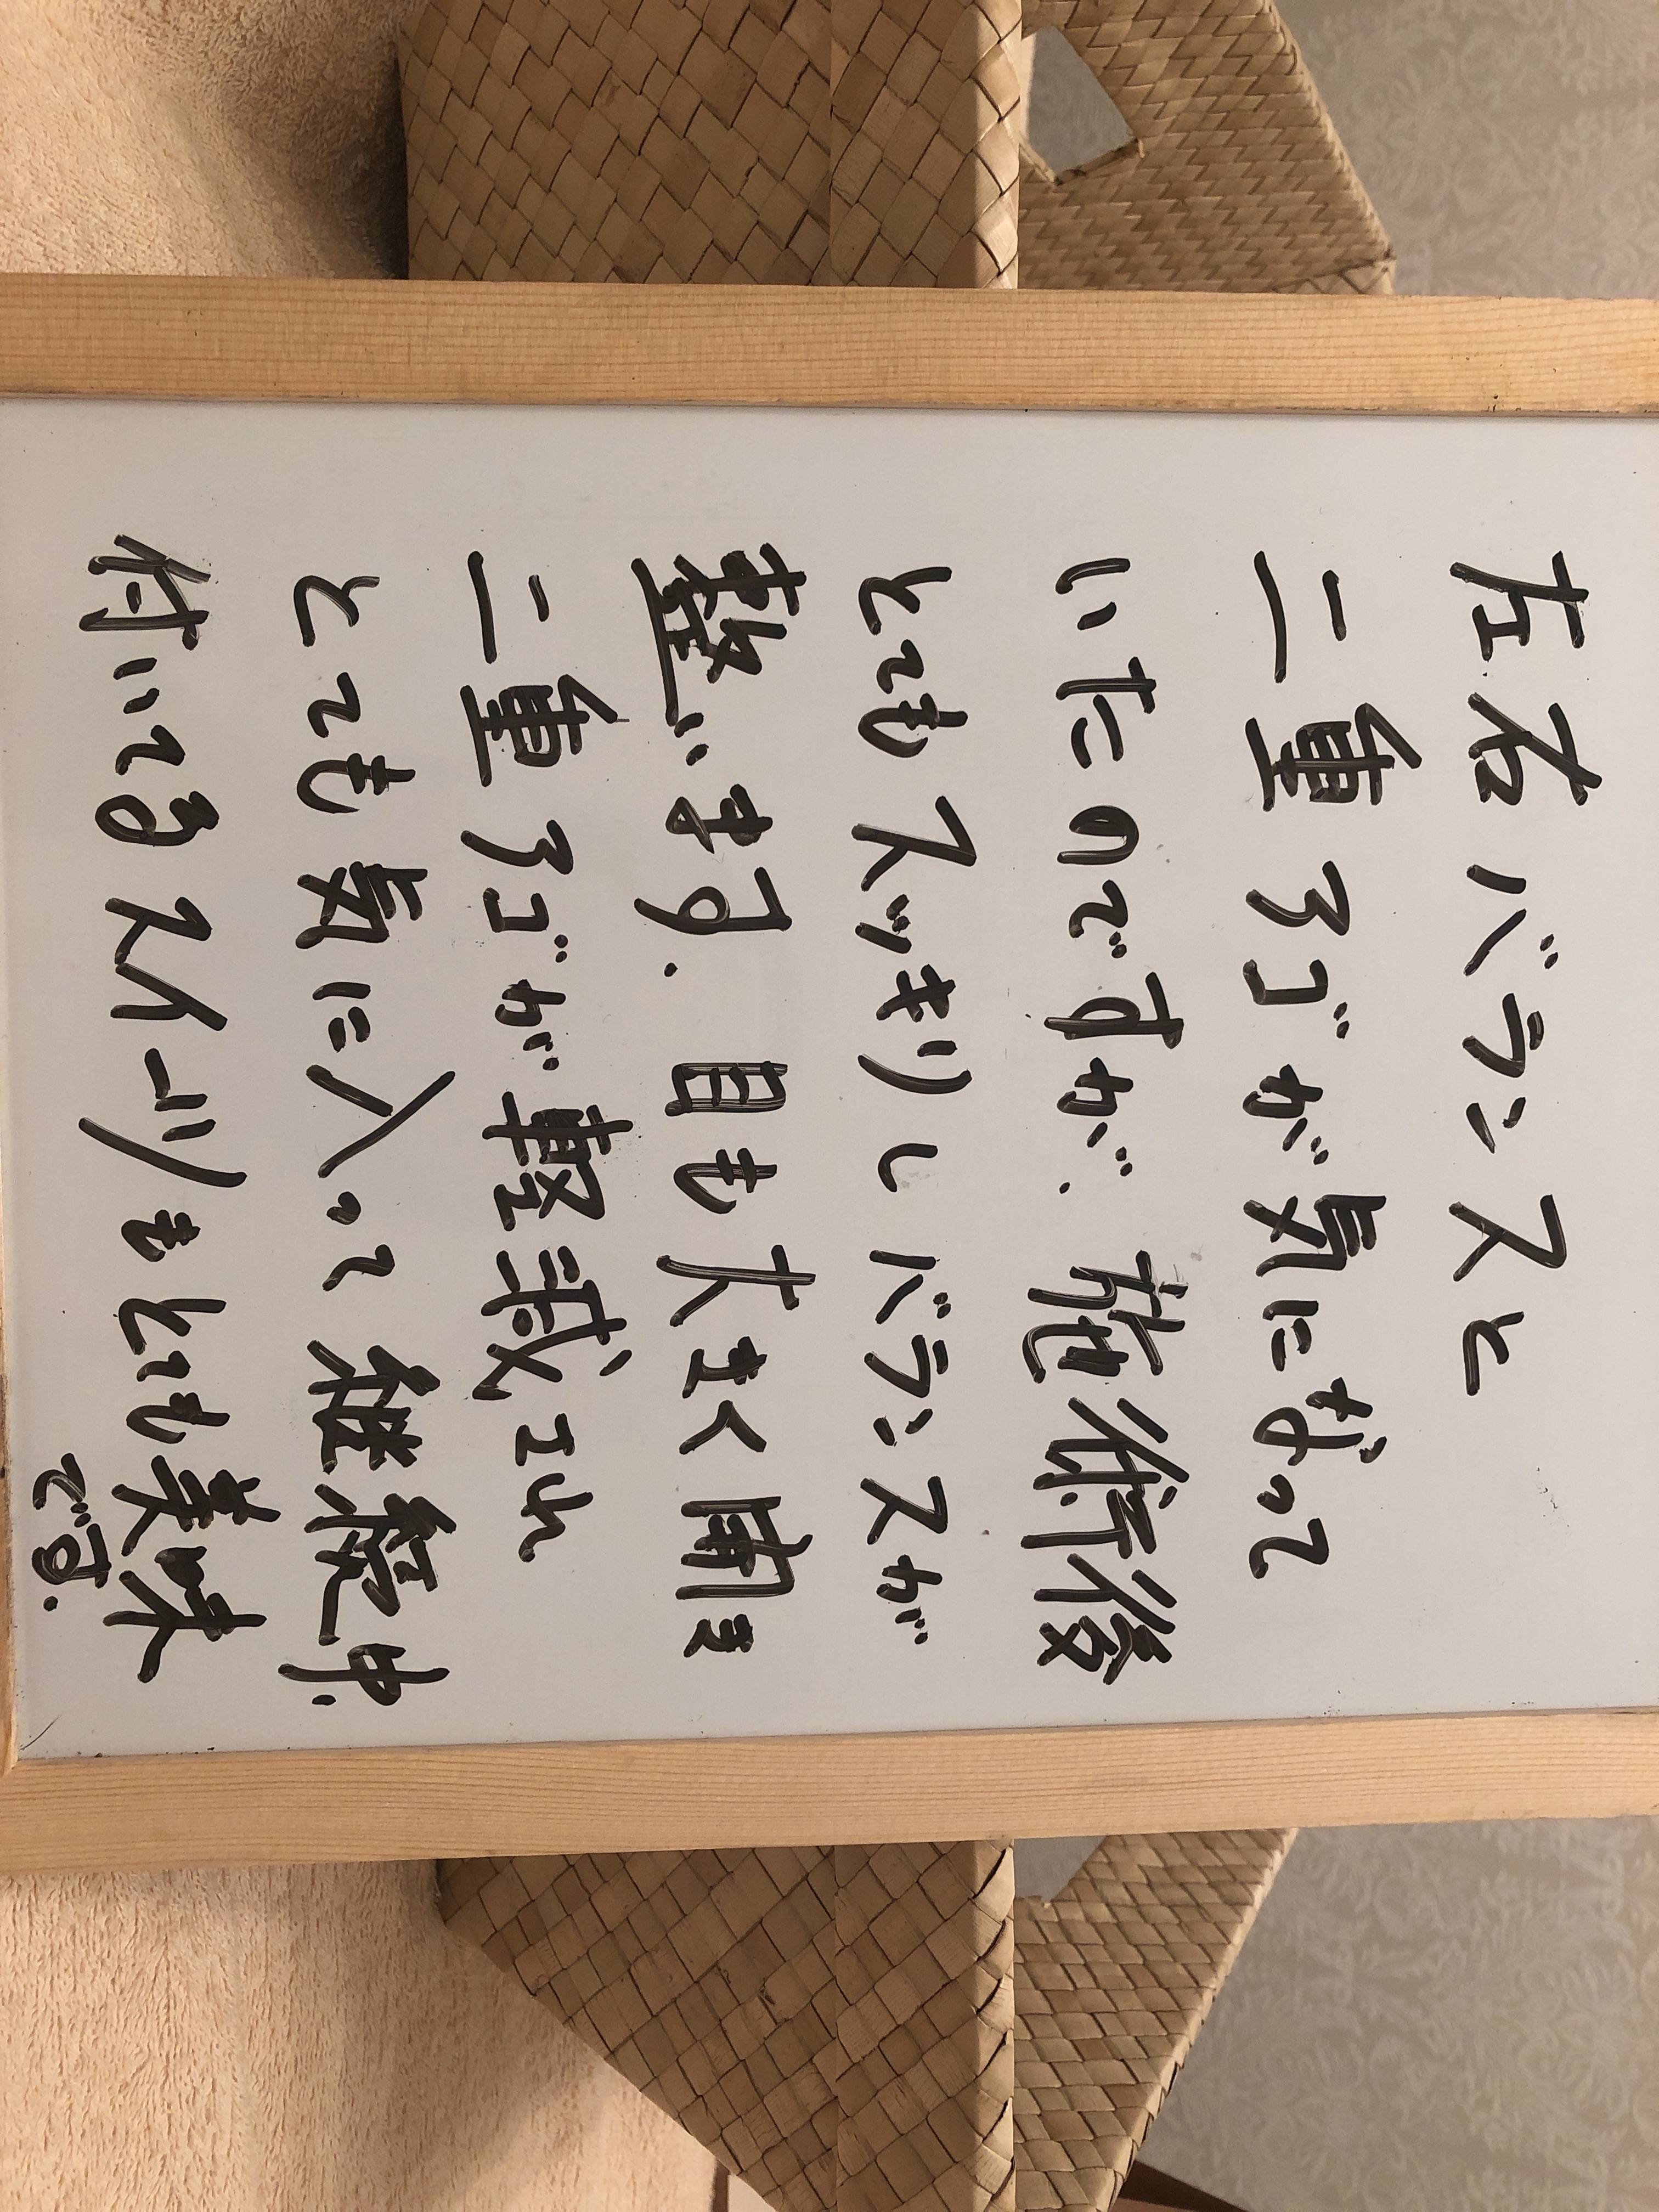 左右バランスと
二重アゴが気になって
いたのですが、施術後
とてもスッキリしバランスが
整います。目も大きく開き
二重アゴが軽減され
とても気に入って継続中、
付いてるスイーツもとても美味
です。